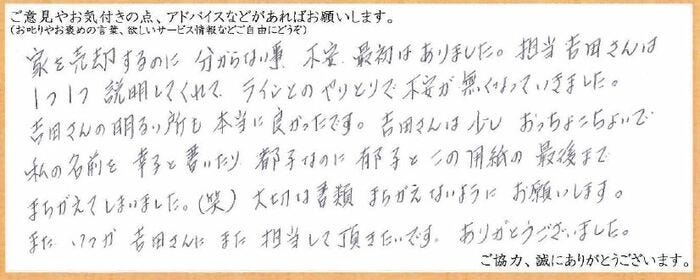 ご意見やお気付きの点、アドバイスなどがあればお願いします。
(お叱りやお褒めの言葉、欲しいサービス情報などご自由にどうぞ)
家を売却するのに 分からない事 不安 最初はありました。担当吉田さんは
1つ1つ 説明してくれて ラインとのやりとりで 不安が 無くなっていきました。
吉田さんの明るい所も 本当に良かったです。吉田さんは少し おっちょこちょいで
私の名前を 幸子と書いたり 都子なのに 郁子と この用紙の 最後まで
まちがえてしまいました。(笑) 大切な書類 まちがえないように お願いします。
また いつか 吉田さんに また 担当して頂きたいです。ありがとうございました。
ご協力、誠にありがとうございます。